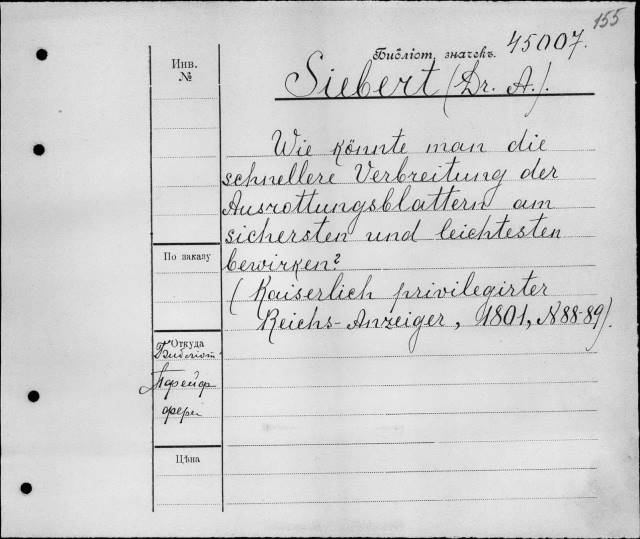 155
Библіот. значекъ. 45007.
Инв.
№
Siebert (Dr. A.).
Wie könnte man die
schnellere Verbreitung der
Ausrottungsblattern am
sichersten und leichtesten
bewirken?
(Kaiserlich privilegirter
Reichs-Anzeiger, 1801, N 88-89).
По заказу
Откуда
Библіот
Пфейф
фера
Цѣна